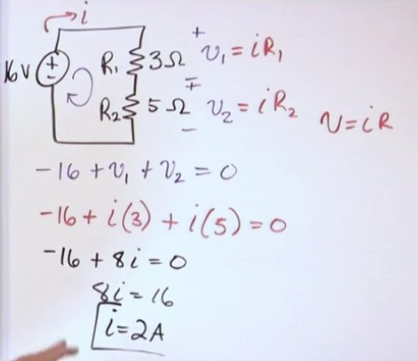 i
+
16V + - R₁ 3Ω v₁ = iR₁
- +
R₂ 5Ω v₂ = iR₂ V = iR
-
-16 + v₁ + v₂ = 0
-16 + i(3) + i(5) = 0
-16 + 8i = 0
8i = 16
i = 2A